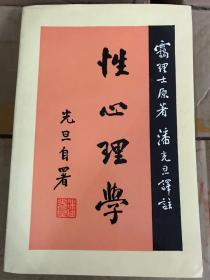 霭理士原著 潘光旦譯註
性心理學
光旦自署